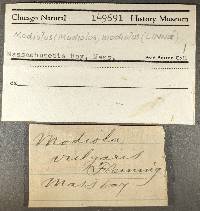 Chicago Natural 149591 History Museum
Modiolus (Modiolus) modiolus (LINNÉ)
Massachusetts Bay, Mass.
ex
Modiola
vulgaris
Fleming
Mass Bay